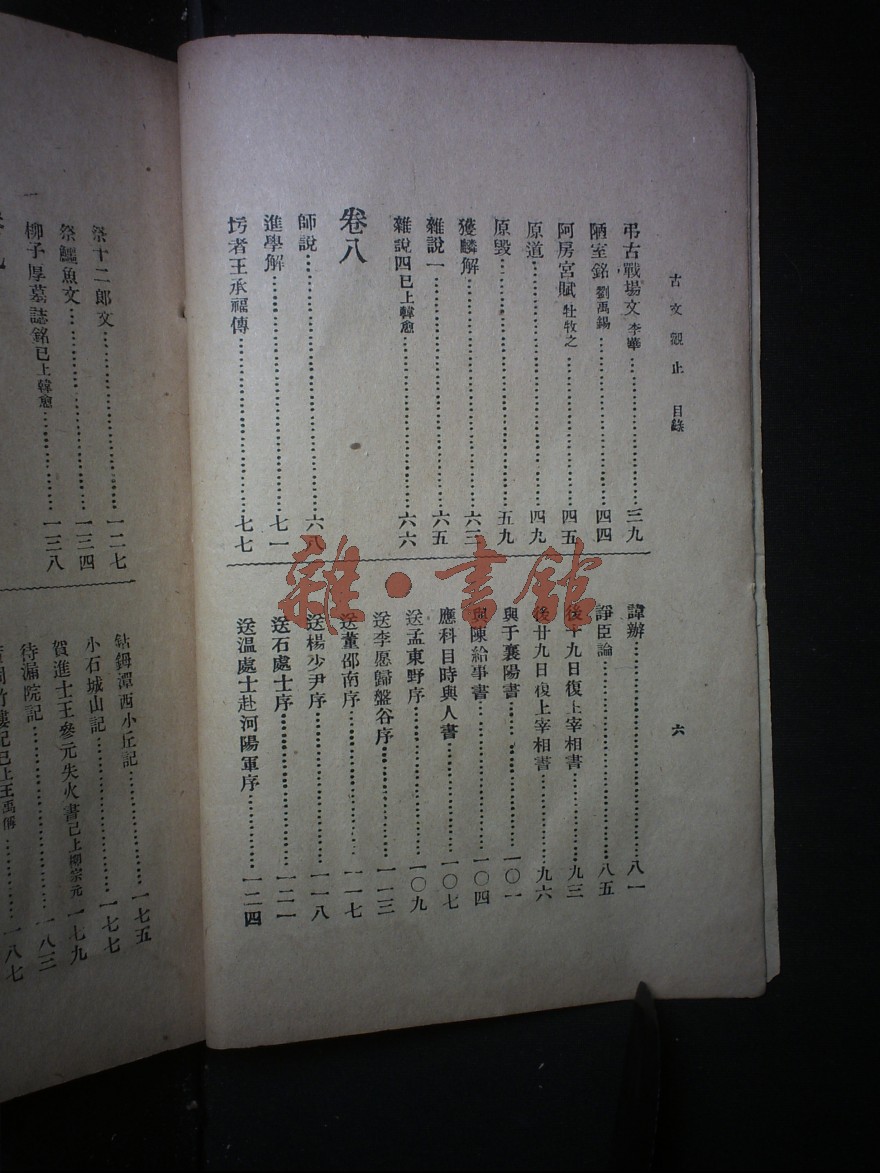 古文觀止 目錄
六
弔古戰場文 李華……三九
陋室銘 劉禹錫……四四
阿房宮賦 杜牧之……四五
原道……四九
原毀……五九
獲麟解……六三
雜說一……六五
雜說四 已上韓愈……六六
卷八
師說……六八
進學解……七一
圬者王承福傳……七七
諱辨……八一
諍臣論……八五
後十九日復上宰相書……九三
後廿九日復上宰相書……九六
與于襄陽書……一〇一
與陳給事書……一〇四
應科目時與人書……一〇七
送孟東野序……一〇九
送李愿歸盤谷序……一一三
送董邵南序……一一七
送楊少尹序……一一八
送石處士序……一二一
送溫處士赴河陽軍序……一二四
祭十二郎文……一二七
祭鱷魚文……一三四
柳子厚墓誌銘 已上韓愈……一三八
鈷鉧潭西小丘記……一七五
小石城山記……一七七
賀進士王參元失火書 已上柳宗元……一七九
待漏院記……一八三
竹樓記 已上王禹偁……一八七
雜·書館